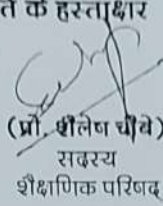 त के हस्ताक्षर
(प्रो. शैलेष चौबे)
सदस्य
शैक्षणिक परिषद